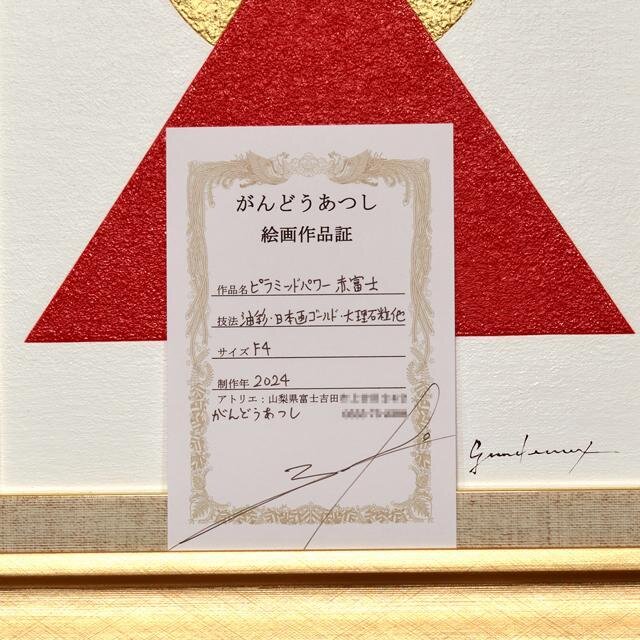 がんどうあつし
絵画作品証
作品名 ピラミッドパワー 赤富士
技法 油彩・日本画ゴールド・大理石粒他
サイズ F4
制作年 2024
アトリエ：山梨県富士吉田
がんどうあつし